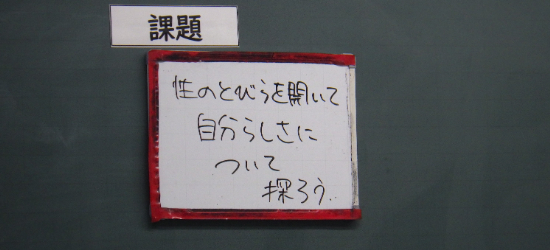 課題
性のとびらを開いて
自分らしさに
ついて
探ろう..